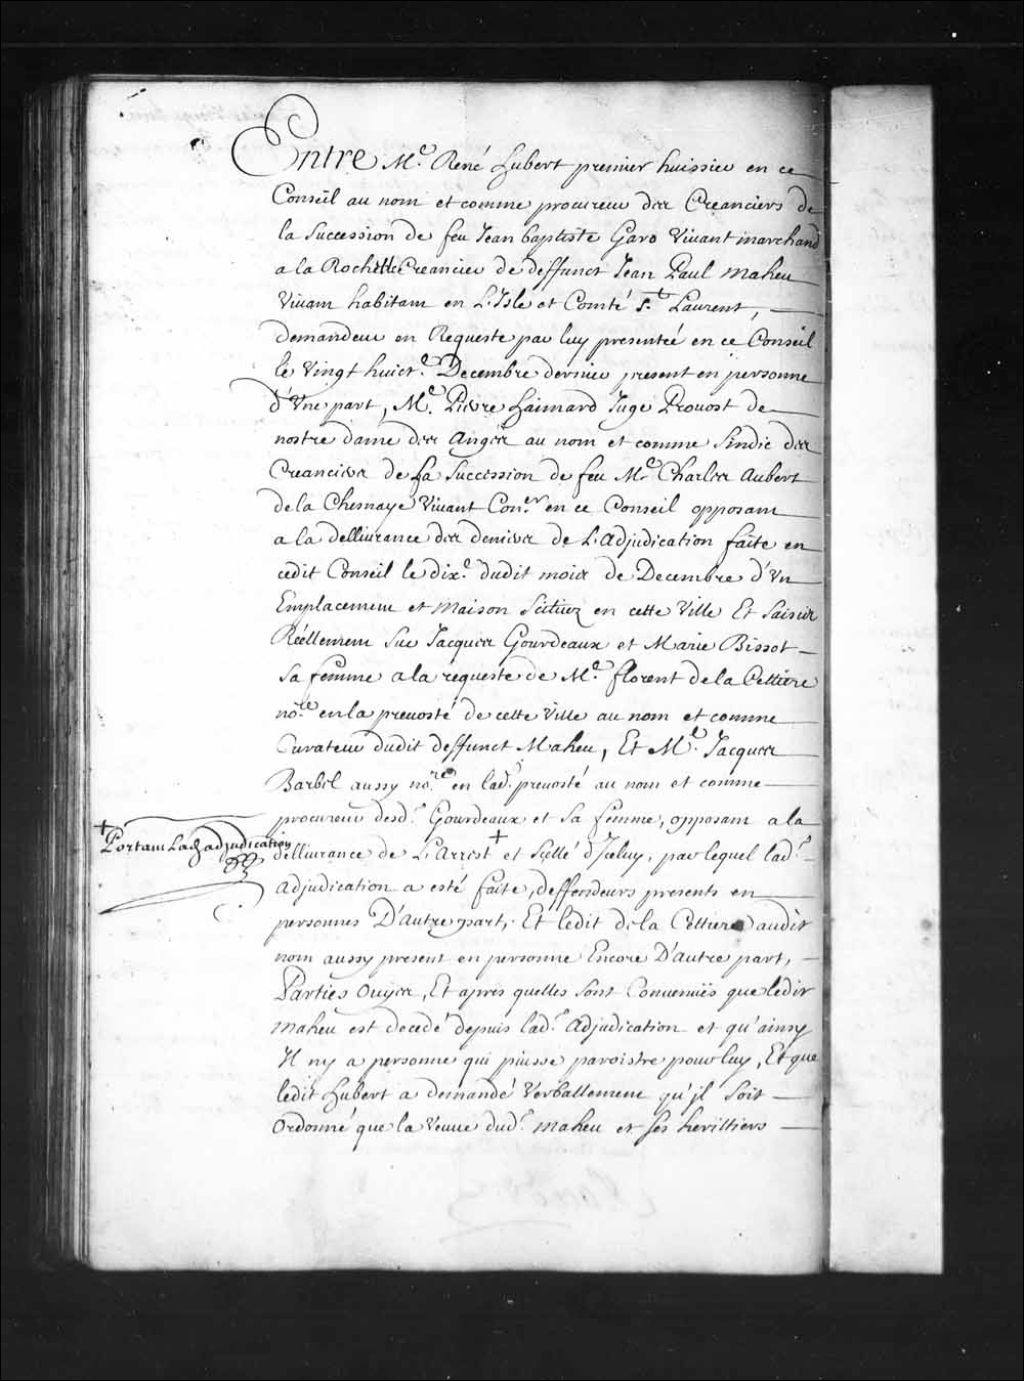 Entre M.e René hubert premier huissier en ce
Conseil au nom et comme procureur des Creanciers de
la Succession de feu Jean baptiste Garo Vivant marchand
a la Rochelle Creancier de deffunct Jean Paul maheu
Vivant habitant en L'Isle et Comté S.t Laurent,
demandeur en Requeste par luy presenteé en ce Conseil
le Vingt huict.e Decembre dernier present en personne
d'Vne part, M.e Pierre haimard Juge Prouost de
nostre dame des Anges au nom et comme Sindic des
Creanciers de La Succession de feu M.e Charles Aubert
de la Chesnaye Vivant Con.er en ce Conseil opposant
a la dellivrance des deniers de L'adjudication faite en
cedit Conseil le dix.e dudit mois de Decembre d'Vn
Emplacement et maison Scituez en cette Ville Et Saisis
Réellement Sur Jacques Gourdeaux et Marie Bissot
Sa femme a la requeste de M.e florent de la Cettiere
no.re en la prevosté de cette Ville au nom et comme
Curateur dudit deffunct Maheu, Et M.e Jacques
Barbel aussy no.re en lad.e prevosté au nom et comme
procureur desd.s Gourdeaux et Sa femme, opposant a la
+ Portant Lad adjudication
dellivrance de L'Arrest + et Scellé d'Iceluy, par lequel lad.e
adjudication a esté faite, deffendeurs presents en
personnes D'autre part, Et ledit de la Cettiere audit
nom aussy present en personne Encore D'autre part,
Parties Ouyes, Et apres quelles sont Convenuës que ledit
maheu est decedé depuis lad.e Adjudication et qu'ainsy
Il ny a personne qui puisse paroistre pour luy, Et que
ledit hubert a demandé Verballement qu'jl Soit
Ordonné que la Veuve dud.t maheu et ses heritiers